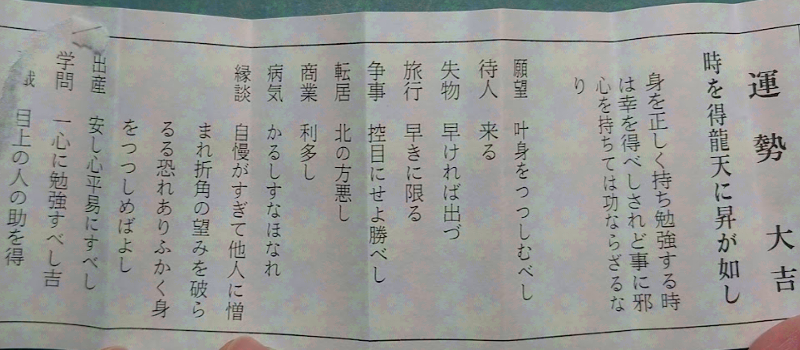 運勢 大吉
時を得龍天に昇が如し
身を正しく持ち勉強する時
は幸を得べしされど事に邪
心を持ちては功ならざるな
り
願望 叶身をつつしむべし
待人 来る
失物 早ければ出づ
旅行 早きに限る
争事 控目にせよ勝べし
転居 北の方悪し
商業 利多し
病気 かるしすなほなれ
縁談 自慢がすぎて他人に憎
まれ折角の望みを破ら
るる恐れありふかく身
をつつしめばよし
出産 安し心平易にすべし
学問 一心に勉強すべし吉
目上の人の助を得